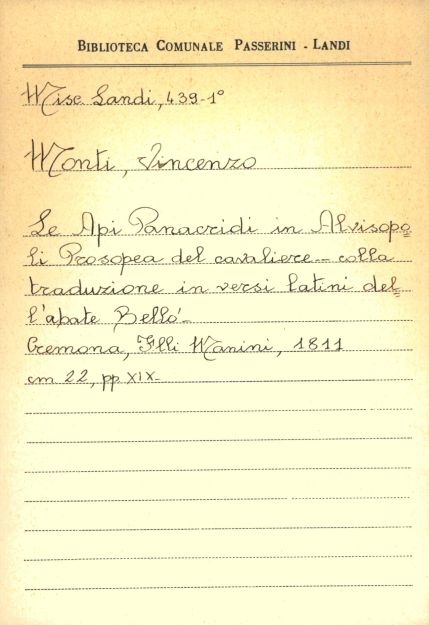 BIBLIOTECA COMUNALE PASSERINI - LANDI
Misc Landi, 439-1°
Monti, Vincenzo
Le Api Panacridi in Alvisopo=
li Prosopea del cavaliere — colla
traduzione in versi latini del=
l'abate Bellò -
Cremona, F.lli Manini, 1811
cm 22, pp XIX-